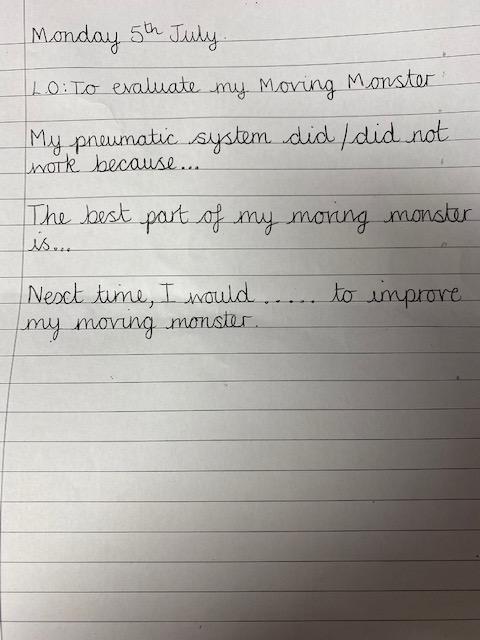 Monday 5th July.
LO: To evaluate my Moving Monster
My pneumatic system did / did not
work because...
The best part of my moving monster
is...
Next time, I would ..... to improve
my moving monster.